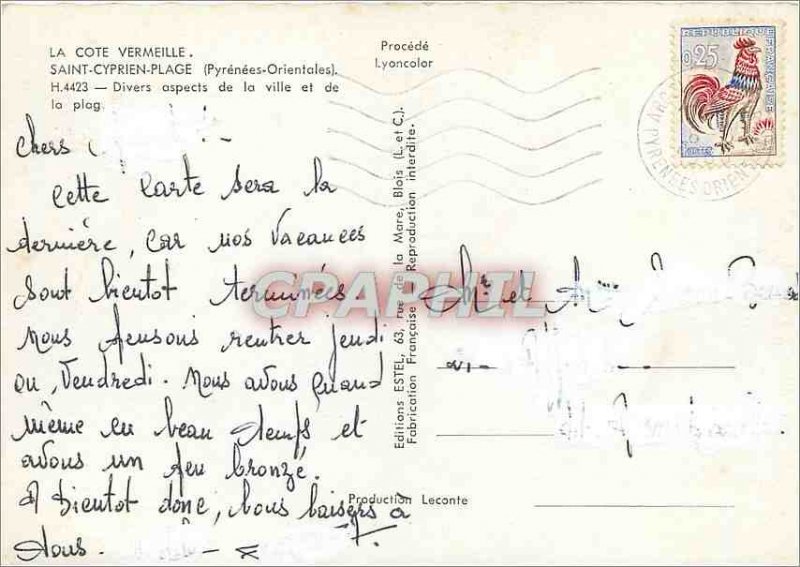 LA COTE VERMEILLE.
SAINT-CYPRIEN-PLAGE (Pyrénées-Orientales).
H.4423 — Divers aspects de la ville et de
la plag
Procédé
Lyoncolor
REPUBLIQUE FRANÇAISE
0,25
POSTES
PYRENEES ORIENT
chers
cette carte sera la
dernière, car nos vacances
sont bientôt terminées.
Nous pensons rentrer jeudi
ou, Vendredi. Nous avons quand
même eu beau temps et
avons un peu bronzé.
A bientôt donc, bons baisers à
tous.
Editions ESTEL, 63, rue de la Mare, Blois (L. et C.).
Fabrication Française - Reproduction interdite.
Mr et Mme
Production Leconte
CPAPHIL